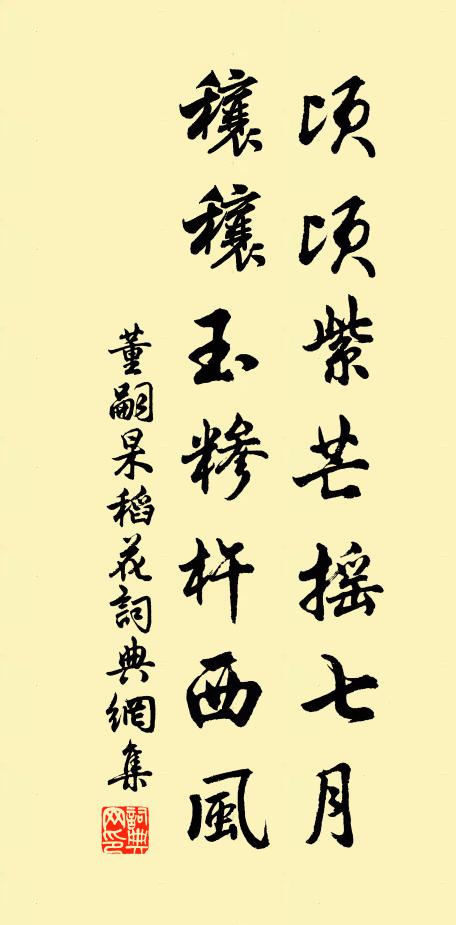 頃頃紫芒摇七月
穰穰玉糝杵西風
董嗣杲稻花詞典網集
詞典網印